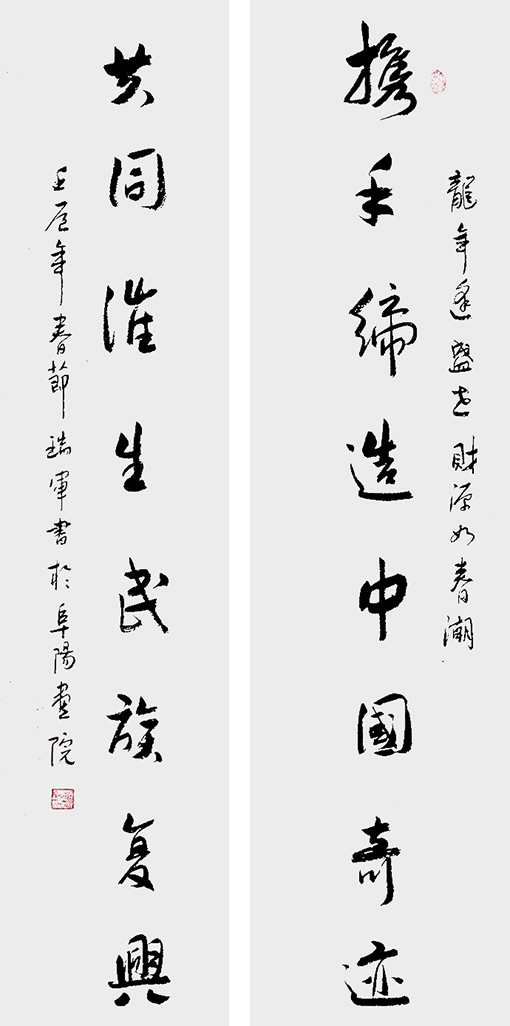 龍年逢盛世財源如春潮
携手締造中國奇迹
共同催生民族复興
壬辰年春節瑞軍書於阜陽畫院